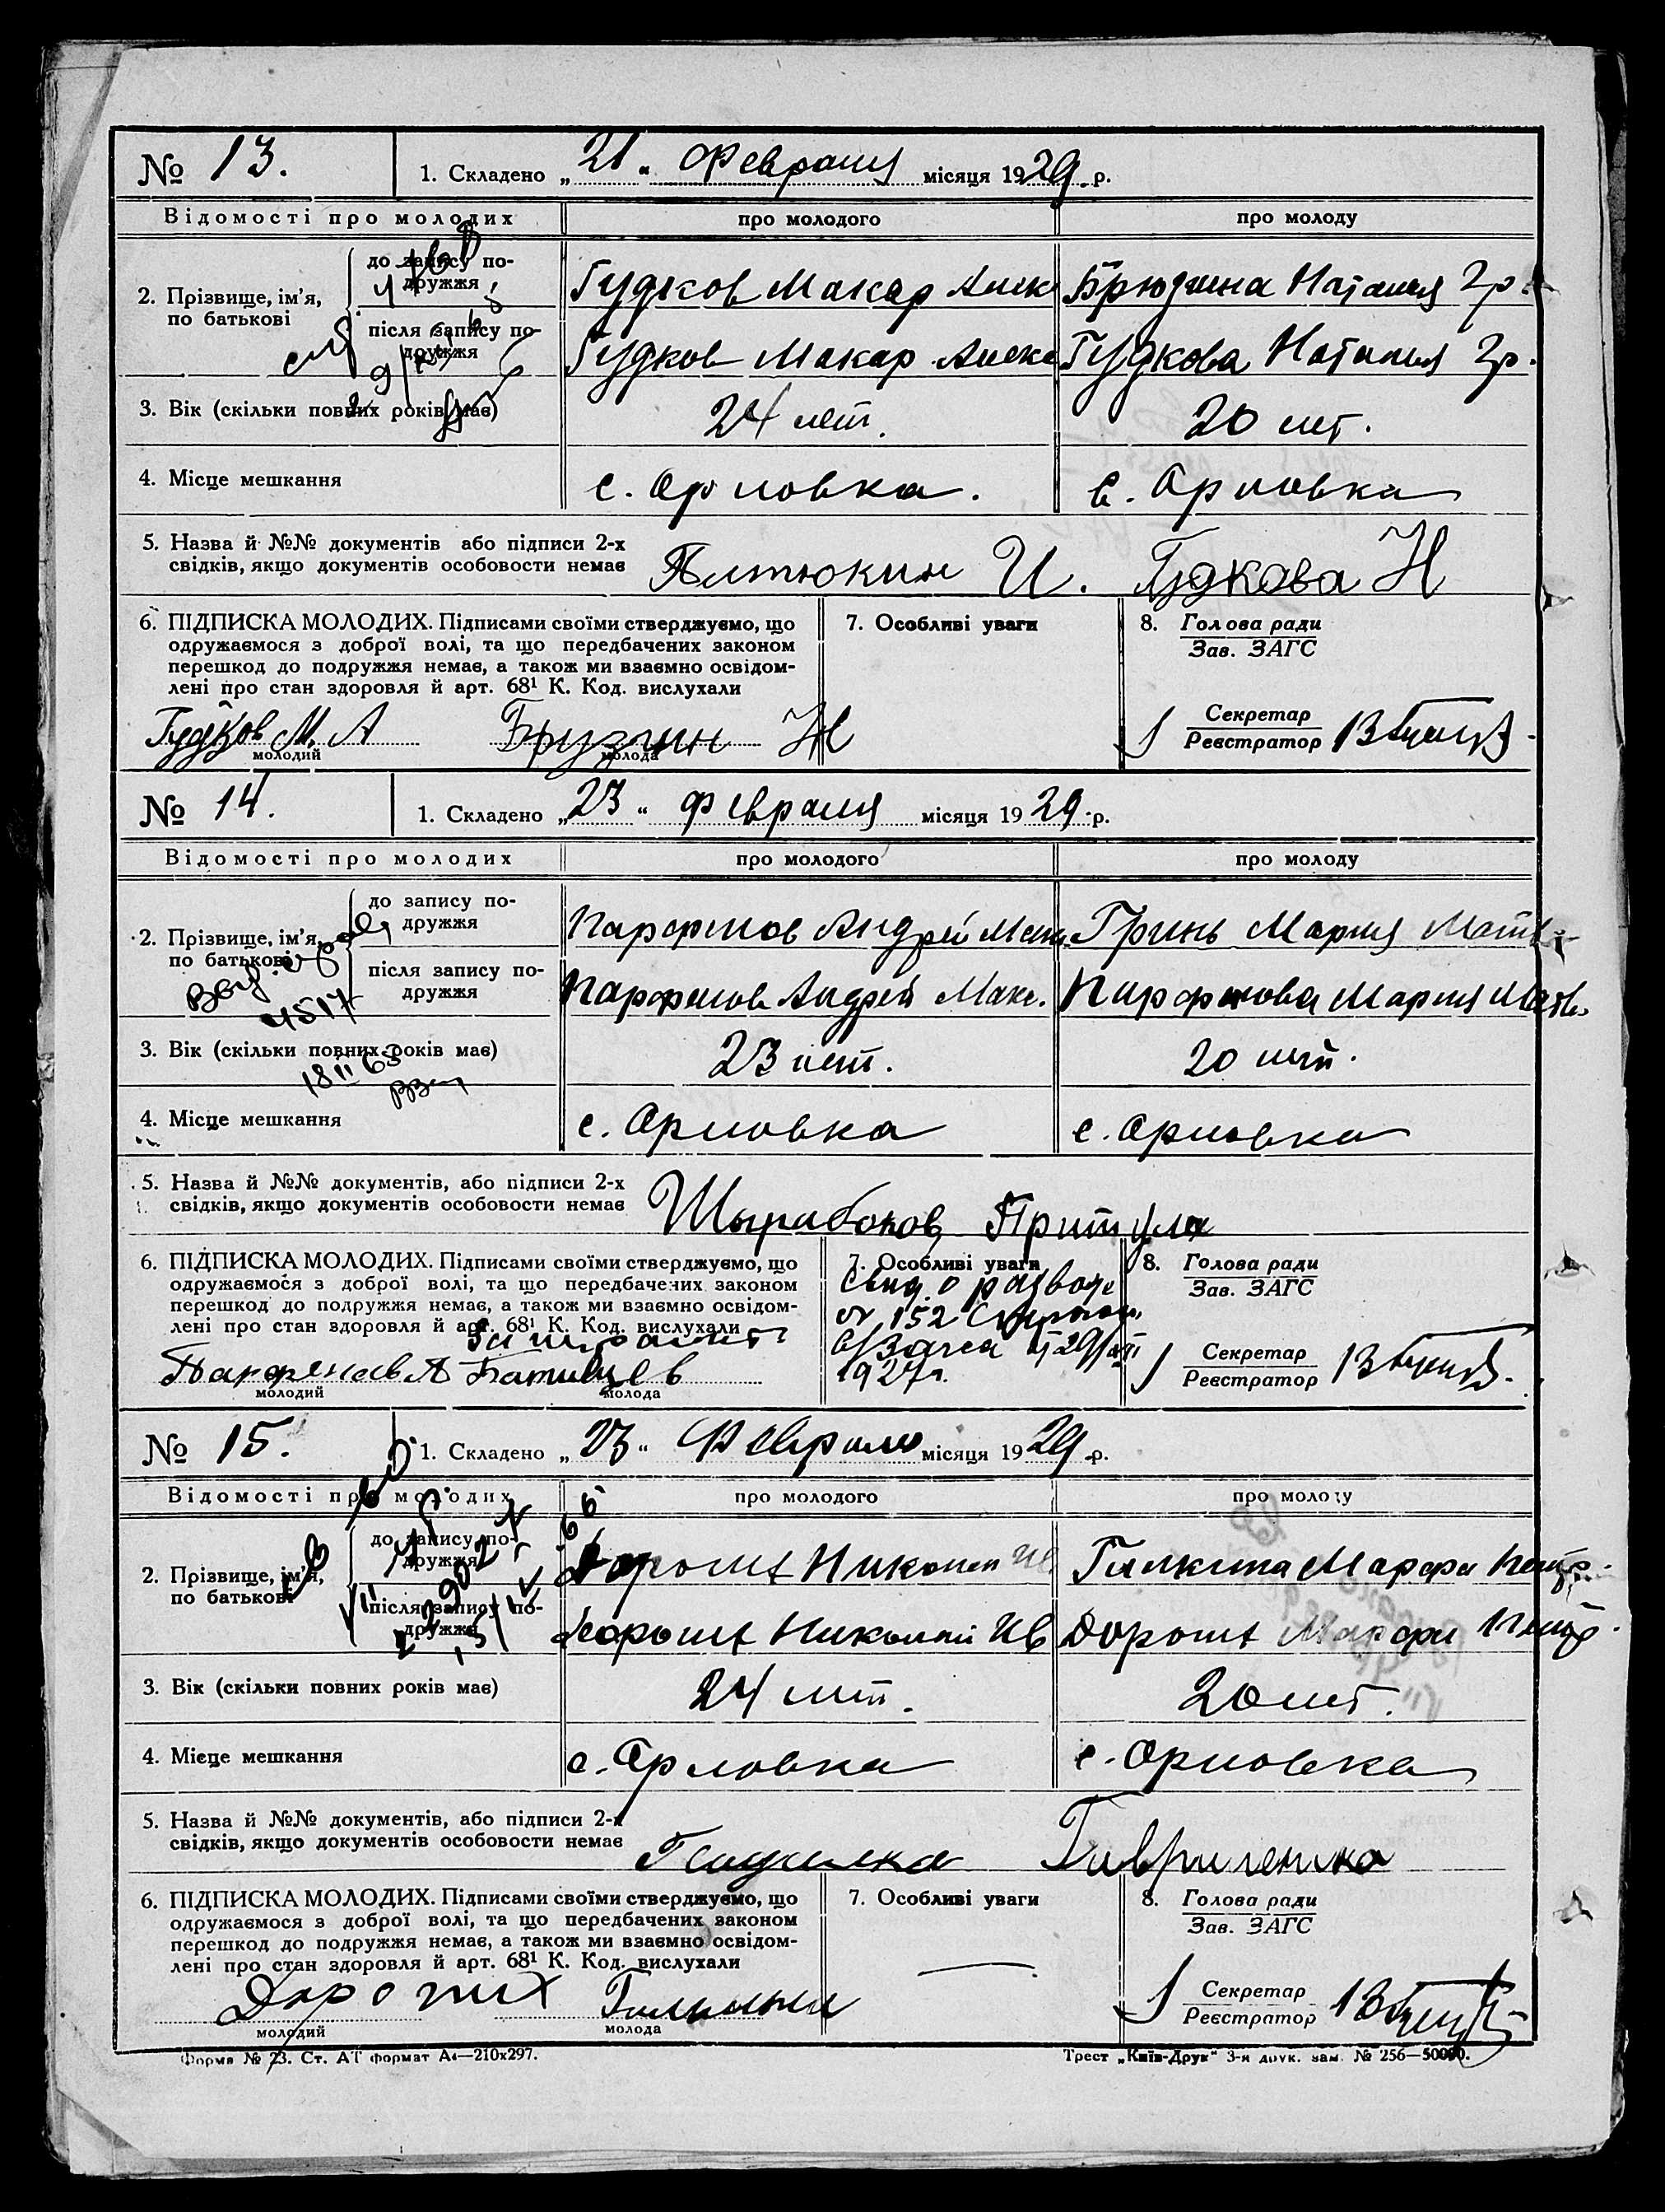 № 13. 1. Складено „21“ Февраля місяця 1929 р.
Відомості про молодих про молодого про молоду
2. Прізвище, ім’я, по батькові
до запису подружжя Гудков Макар Алек Брюзгина Наталья Гр.
після запису подружжя Гудков Макар Алекс Гудкова Наталья Гр.
3. Вік (скільки повних років має) 24 лет. 20 лет.
4. Місце мешкання с. Орловка. с. Орловка
5. Назва й №№ документів або підписи 2-х
свідків, якщо документів особовости немає И. Гудкова Н
6. ПІДПИСКА МОЛОДИХ. Підписами своїми стверджуємо, що
одружаємося з доброї волі, та що передбачених законом
перешкод до подружжя немає, а також ми взаємно освідом-
лені про стан здоровля й арт. 68¹ К. Код. вислухали
Гудков М. А Брузгин Н
молодий молода
7. Особливі уваги
8. Голова ради
Зав. ЗАГС
Секретар
Реєстратор
№ 14. 1. Складено „23“ февраля місяця 1929 р.
Відомості про молодих про молодого про молоду
2. Прізвище, ім’я, по батькові
до запису подружжя Парфенов Андрей Макс Гринь Мария Матв
після запису подружжя Парфенов Андрей Макс. Парфенова Мария Матв.
4517
3. Вік (скільки повних років має) 23 лет. 20 лет.
18 II 63
4. Місце мешкання с. Орловка с. Орловка
5. Назва й №№ документів, або підписи 2-х
свідків, якщо документів особовости немає Притула
6. ПІДПИСКА МОЛОДИХ. Підписами своїми стверджуємо, що
одружаємося з доброї волі, та що передбачених законом
перешкод до подружжя немає, а також ми взаємно освідом-
лені про стан здоровля й арт. 68¹ К. Код. вислухали
Парфенов А
молодий молода
7. Особливі уваги
Свид. о разводе
№ 152
Загса 29/
1927г.
8. Голова ради
Зав. ЗАГС
Секретар
Реєстратор
№ 15. 1. Складено „23“ Февраля місяця 1929 р.
Відомості про молодих про молодого про молоду
2. Прізвище, ім’я, по батькові
до запису подружжя Николай Галкина Марфа Петр.
після запису подружжя Николай Ив Марфа Петр.
3. Вік (скільки повних років має) 24 лет. 20 лет.
4. Місце мешкання с. Орловка с. Орловка
5. Назва й №№ документів, або підписи 2-х
свідків, якщо документів особовости немає Гавриленко
6. ПІДПИСКА МОЛОДИХ. Підписами своїми стверджуємо, що
одружаємося з доброї волі, та що передбачених законом
перешкод до подружжя немає, а також ми взаємно освідом-
лені про стан здоровля й арт. 68¹ К. Код. вислухали
молодий молода
7. Особливі уваги
8. Голова ради
Зав. ЗАГС
Секретар
Реєстратор
Форма № 23. Ст. АТ формат А4—210х297. Трест „Київ-Друк“ 3-я друк. зам. № 256—50000.